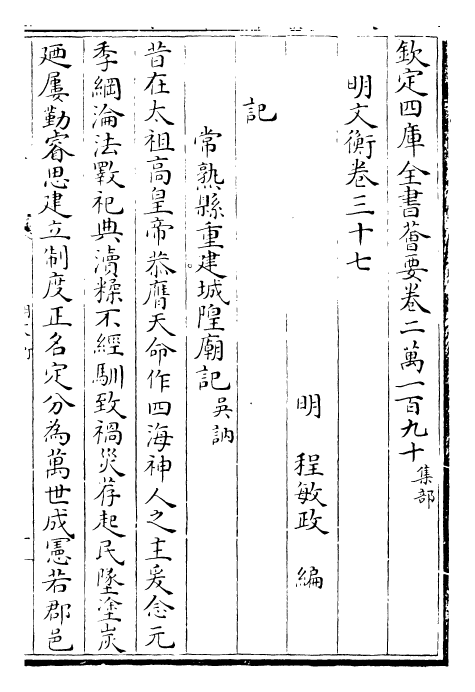 欽定四庫全書薈要卷二萬一百九十 集部
明文衡卷三十七
明 程敏政 編
記
常熟縣重建城隍廟記 吳訥
昔在太祖高皇帝恭膺天命作四海神人之主爰念元
季綱淪法斁祀典瀆糅不經馴致禍災荐起民墜塗炭
廼屢勤睿思建立制度正名定分為萬世成憲若郡邑